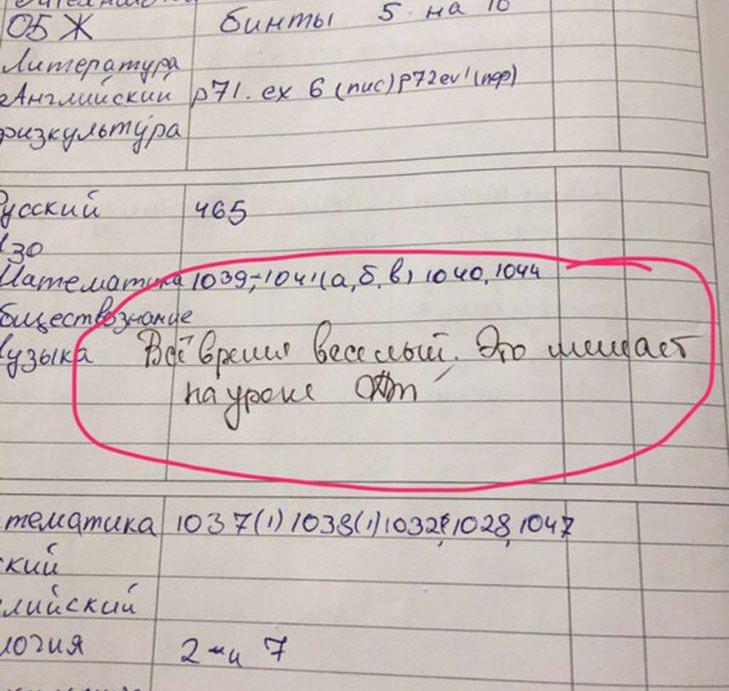 ОБЖ бинты 5 на 10
Литература
Английский p71. ex 6 (пис) p72 ex 1 (пер)
физкультура
русский 465
ИЗО
Математика 1039, 1041(а, б, в) 1040, 1044
обществознание
музыка Всё время веселый. Это мешает
на уроке
тематика 1037(1) 1038(1) 1032, 1028, 1047
ский
лийский
логия 2 и 7